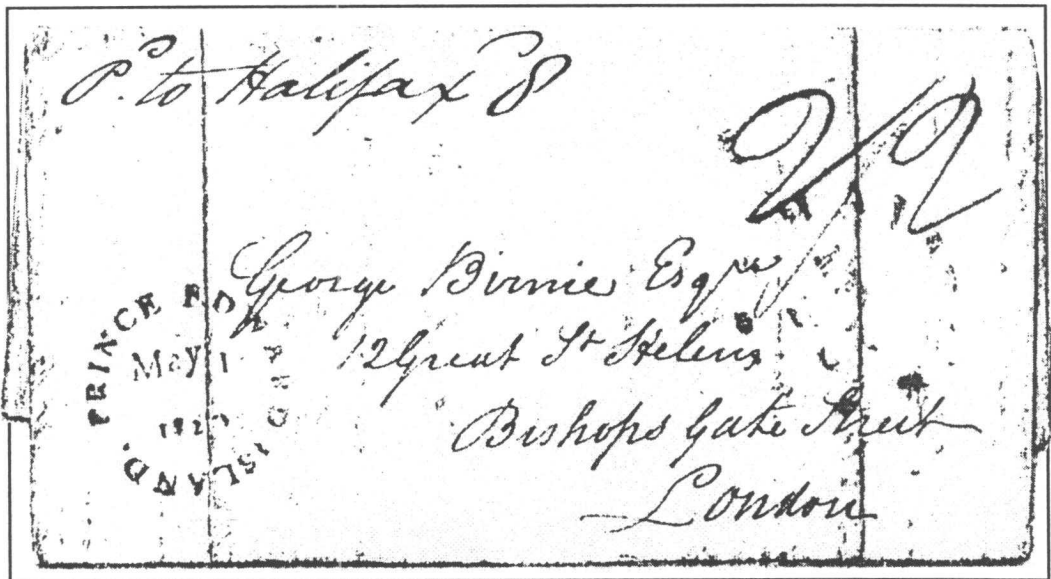 P. to Halifax 8
2/2
George Birnie Esqre
12 Great St Helens
Bishops Gate Street
London
PRINCE EDWARD ISLAND.
May 1